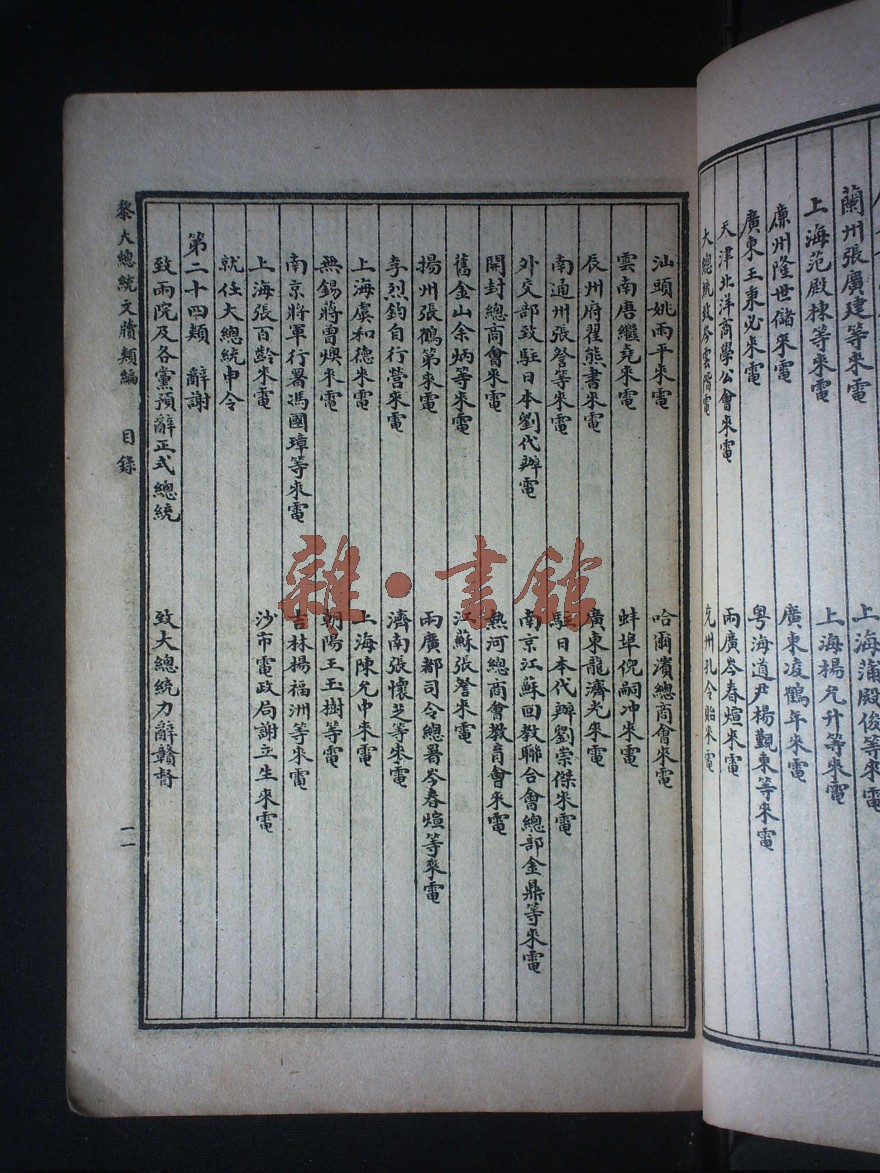 蘭州張廣建等來電　上海蒲殿俊等來電
上海范殿棟等來電　上海楊允升等來電
廉州隆世儲來電　廣東凌鶴年來電
廣東王秉必來電　粵海道尹楊覲東等來電
天津北洋商學公會來電　兩廣岑春煊來電
大總統致岑雲階電　杭州孔令貽來電
汕頭姚雨平來電　哈爾濱總商會來電
雲南唐繼堯來電　蚌埠倪嗣冲來電
辰州府翟熊書來電　廣東龍濟光來電
南通州張詧等來電　駐日本代辦劉崇傑來電
外交部致駐日本劉代辦電　南京江蘇回教聯合會總部金鼎等來電
開封總商會來電　熱河總商會教育會來電
舊金山余炳等來電　江蘇張詧來電
揚州張鶴第來電　兩廣都司令總署岑春煊等來電
李烈鈞自行營來電　濟南張懷芝等來電
上海虞和德來電　上海陳允中來電
無錫蔣曾燠來電　朝陽王玉樹等電
南京將軍行署馮國璋等來電　吉林楊福洲等來電
上海張百齡來電　沙市電政局謝立生來電
就任大總統申令
第二十四類　辭謝
致兩院及各黨預辭正式總統　致大總統力辭贛督
黎大總統文牘類編　目錄　一一
雜·書館